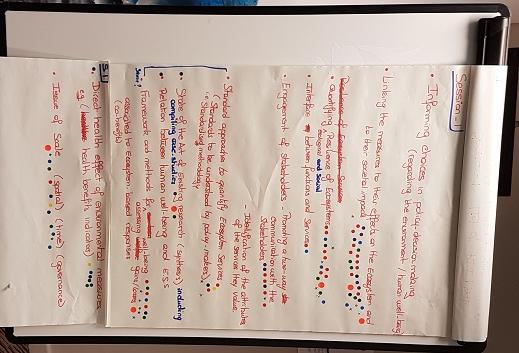 Session
• Informing choices in policy-decision making
(regarding the environment / human well-being)
• Linking the measures to their effects on the Ecosystem and
to the societal impact
• Quantifying Resilience of Ecosystems
and Social
• Interface between function and Service
• Engagement of stakeholders - Promoting a two-way
communication with the
stakeholders
- Identification of the attributes
of the services they value
• Standard approaches to quantify Ecosystem Services
(Standards to be understood by policy makers)
• State of the Art of Existing research (synthesis) including
compiling case-studies
• Relation between human well-being and ESS
• Framework and methods for assessing
associated to ecosystem based responses
(co-benefit)
• Direct health effect of environmental measures
eg ( health benefits indicator)
• Issue of Scale (spatial) (time) (governance)